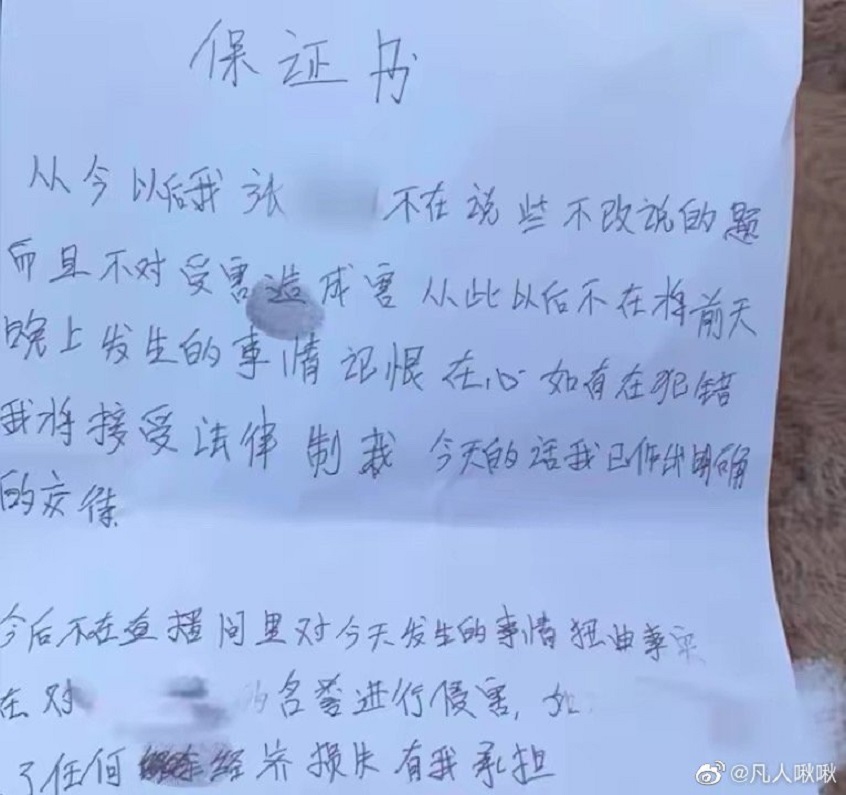 保证书
从今以后我张 不在说些不改说的题
而且不对受害造成害从此以后不在将前天
晚上发生的事情记恨在心如有在犯错
我将接受法律制裁今天的话我已作出明确
的交待
今后不在直播间里对今天发生的事情扭曲事实
在对 的名誉进行侵害,如
了任何 经济损失有我承担
@凡人啾啾